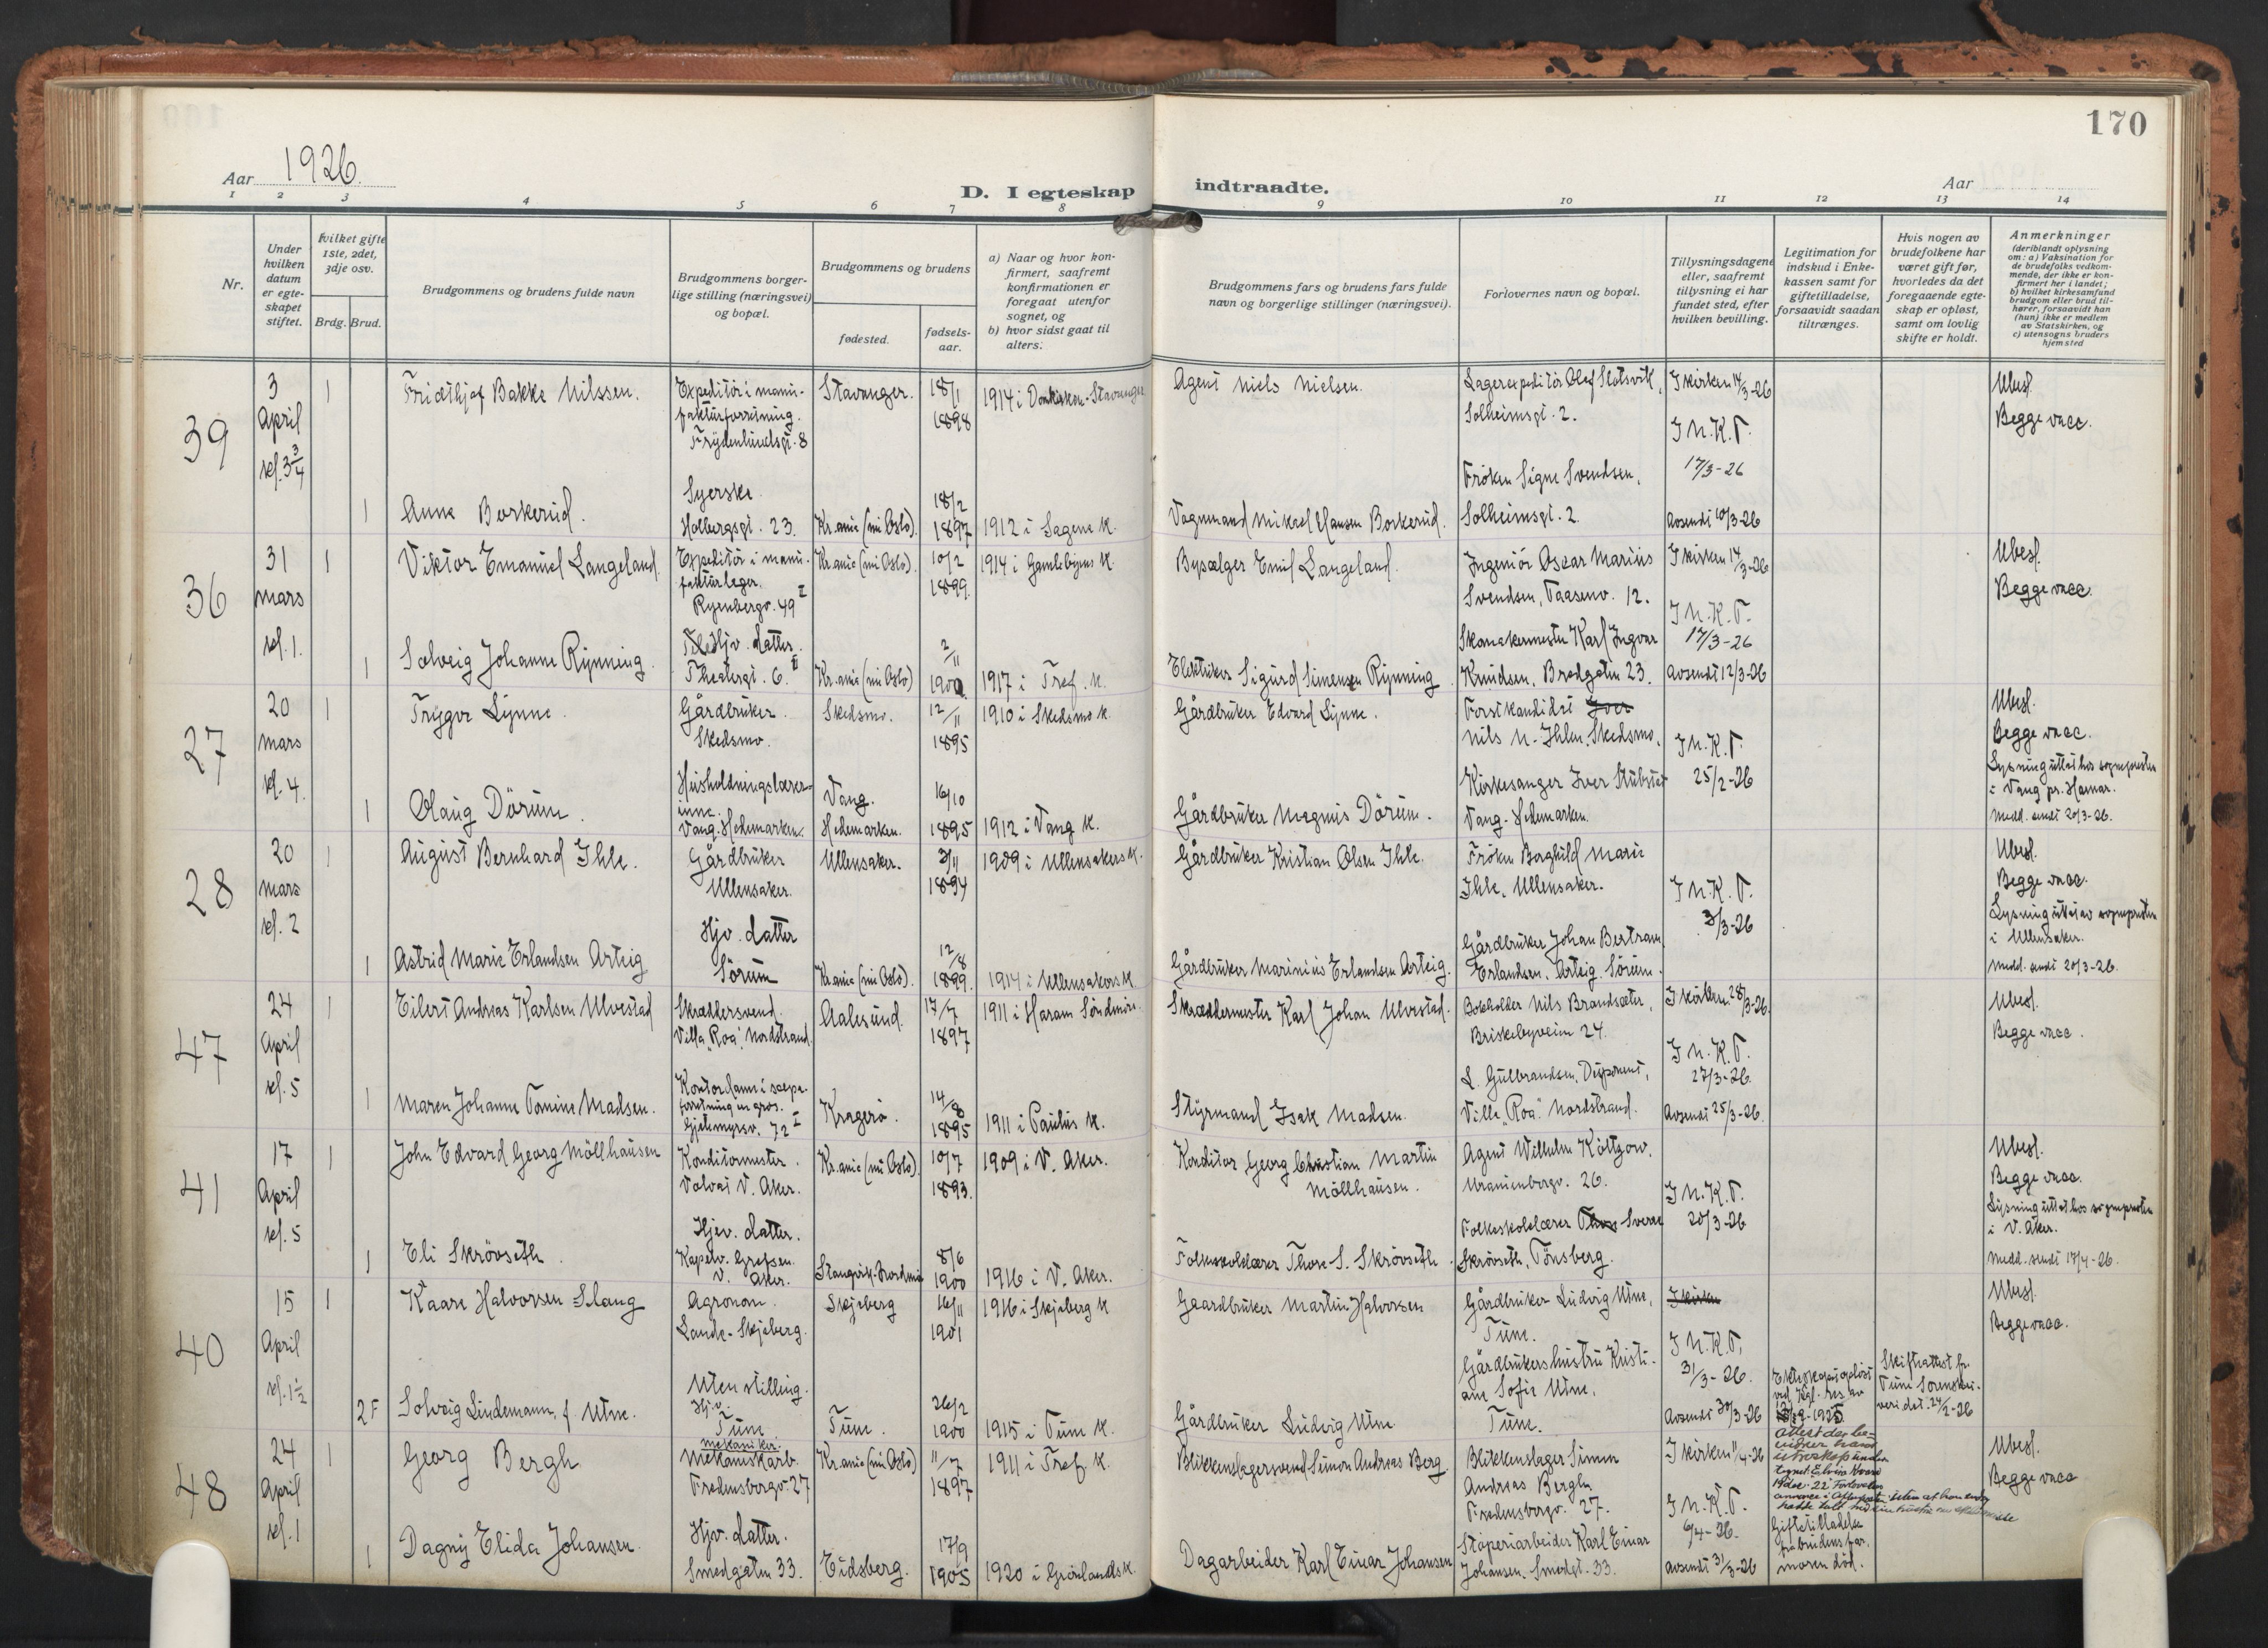 170
Aar 1926.
D. I egteskap indtraadte.
Aar
1 2 3 4 5 6 7 8 9 10 11 12 13 14
Nr.
Under hvilken datum er egteskapet stiftet.
hvilket gifte 1ste, 2det, 3dje osv.
Brdg. Brud.
Brudgommens og brudens fulde navn
Brudgommens borgerlige stilling (næringsvei) og bopæl.
Brudgommens og brudens
fødested.
fødselsaar.
a) Naar og hvor konfirmert, saafremt konfirmationen er foregaat utenfor sognet, og
b) hvor sidst gaat til alters.
Brudgommens fars og brudens fars fulde navn og borgerlige stillinger (næringsvei).
Forlovernes navn og bopæl.
Tillysningsdagene eller, saafremt tillysning ei har fundet sted, efter hvilken bevilling.
Legitimation for indskud i Enkekassen samt for giftetilladelse, forsaavidt saadan tiltrænges.
Hvis nogen av brudefolkene har været gift før, hvorledes da det foregaaende egteskap er opløst, samt om lovlig skifte er holdt.
Anmerkninger (deriblandt oplysning om: a) Vaksination for de brudefolks vedkommende, der ikke er konfirmert her i landet; b) hvilket kirkesamfund brudgom eller brud tilhører, forsaavidt han (hun) ikke er medlem av Statskirken, og c) utensogns bruders hjemsted
39
3 April kl. 3 3/4
1
Fridthjof Bakke Nilssen.
Expeditör i manufakturforretning. Frydenlundsgt. 8
Stavanger.
18/1 1898
1914 i Domkirken-Stavanger
Agent Niels Nielsen.
Lagerexpeditör Olaf Slotsvik, Solheimsgt. 2.
I kirken 14/3-26
I N.K.T. 17/3-26
Ubesl. Begge vacc.
1
Anna Borkerud.
Syerske Holbergsgt. 23.
Kr.ania (nu Oslo).
18/2 1897
1912 i Sagene K.
Vognmand Mikael Hansen Borkerud.
Fröken Signe Svendsen, Solheimsgt. 2.
Avsendt 10/3-26
36
31 mars kl. 1.
1
Viktor Emanuel Langeland.
Expeditör i manufakturlager. Ryenbergv. 49 II
Kr.ania (nu Oslo).
10/2 1899.
1914 i Gamlebyens K.
Bysælger Emil Langeland.
Ingeniör Oscar Marius Svendsen, Taasenv. 12.
I kirken 14/3-26
I N.K.T. 17/3-26
Ubesl. Begge vacc.
1
Solveig Johanne Rynning.
Hjv. datter. Theatergt. 6. II
Kr.ania (nu Oslo)
2/11 1900.
1917 i Tref. K.
Elektriker Sigurd Simensen Rynning
Skomakermester Karl Ingvar Knudsen, Bredgaten 23.
Avsendt 12/3-26
27
20 mars kl. 4.
1
Trygve Lynne.
Gårdbruker. Skedsmo.
Skedsmo.
12/11 1895
1910 i Skedsmo K.
Gårdbruker Edvard Lynne.
Forstkandidat Nils N. Ihlen, Skedsmo.
I N.K.T. 25/2-26
Ubesl. Begge vacc.
Lysning uttat hos sognepresten i Vang pr. Hamar.
Medd. sendt 20/3-26.
1
Olaug Dörum.
Husholdningslærerinne. Vang. Hedemarken.
Vang. Hedemarken.
16/10 1895
1912 i Vang K.
Gårdbruker Magnus Dörum.
Kirkesanger Iver Stubsjet Vang-Hedemarken.
28
20 mars kl. 2
1
August Bernhard Ihle.
Gårdbruker Ullensaker.
Ullensaker.
3/11 1894
1909 i Ullensakers K.
Gårdbruker Kristian Olsen Ihle.
Fröken Borghild Marie Ihle, Ullensaker.
I N.K.T. 3/3-26
Ubesl. Begge vacc.
Lysning uttat av sognepresten i Ullensaker.
Medd. sendt 20/3-26.
1
Astrid Marie Erlandsen Arteig
Hjv. datter Sörum
Kr.ania (nu Oslo).
12/8 1899.
1914 i Ullensakers K.
Gårdbruker Marinius Erlandsen Arteig.
Gårdbruker Johan Bertram Erlandsen. Arteig Sörum.
47
24 April kl. 5
1
Eilert Andreas Karlsen Ulvestad
Skreddersvend. Villa "Roa". Nordstrand.
Aalesund.
17/7 1897
1911 i Haram Söndmöre
Skreddermester Karl Johan Ulvestad.
Bokholder Nils Brandsæter, Briskebyveien 24.
I kirken 28/3-26.
I N.K.T. 27/3-26.
Ubesl. Begge vacc.
1
Maren Johanne Tomine Madsen.
Kontordame i sæpeforretning en gros. Gjetemyrsv. 72 I
Kragerö.
14/8 1895
1911 i Paulus K.
Styrmand Isak Madsen.
L. Gulbrandsen, Disponent, Villa "Roa". Nordstrand.
Avsendt 25/3-26.
41
17 April kl. 5
1
John Edvard Georg Möllhausen
Konditormester. Volvat V. Aker.
Kr.ania (nu Oslo)
10/7 1893.
1909 i V. Aker.
Konditor Georg Christian Martin Möllhausen.
Agent Wilhelm Költzow, Uranienborgv. 26.
I N.K.T. 20/3-26
Ubesl. Begge vacc.
Lysning uttat hos sognepresten i V. Aker.
Medd. sendt 17/4-26.
1
Eli Skrövseth.
Hjev. datter. Kapelv. Grefsen. V. Aker.
Stangvik-Nordmöre
8/6 1900
1916 i V. Aker.
Folkeskolelærer Thore S. Skrövseth.
Folkeskolelærer Sverre Skrövseth, Tönsberg.
40
15 April kl. 1 1/2
1
Kaare Halvorsen Slang
Agronom. Lande-Skjeberg.
Skjeberg
16/11 1901
1916 i Skjeberg K
Gaardbruker Martin Halvorsen
Gårdbruker Ludvig Utne, Tune.
I kirken
I N.K.T. 31/3-26.
Ubesl. Begge vacc.
2 F
Solveig Lindemann, f. Utne.
Uten stilling. Hj.v. Tune.
Tune.
26/2 1900
1915 i Tune K.
Gårdbruker Ludvig Utne.
Gårdbrukers hustru Kristiane Sofie Utne, Tune.
Avsendt 30/3-26
Ekteskapet oplöst ved Kgl. res. av 1925
Skifteattest fr. Tune Sorenskriveri dat. 24/2-26
48
24 April kl. 1
1
Georg Bergh
mekaniker. Mekaniskarb. Fredensborgv. 27
Kr.ania (nu Oslo)
11/7 1897
1911 i Tref. K.
Blikkenslagersvend Simon Andreas Berg.
Blikkenslager Simon Andreas Bergh, Fredensborgv. 27.
I kirken 11/4-26
I N.K.T. 6/4-26.
Ubesl. Begge vacc
1
Dagny Elida Johansen.
Hjv. datter. Smedgaten 33.
Eidsberg.
17/9 1905
1920 i Grönlands K.
Dagarbeider Karl Einar Johansen
Stöperiarbeider Karl Einar Johansen. Smedgt. 33.
Avsendt 31/3-26
Giftetilladelse fra brudens far. moren död.